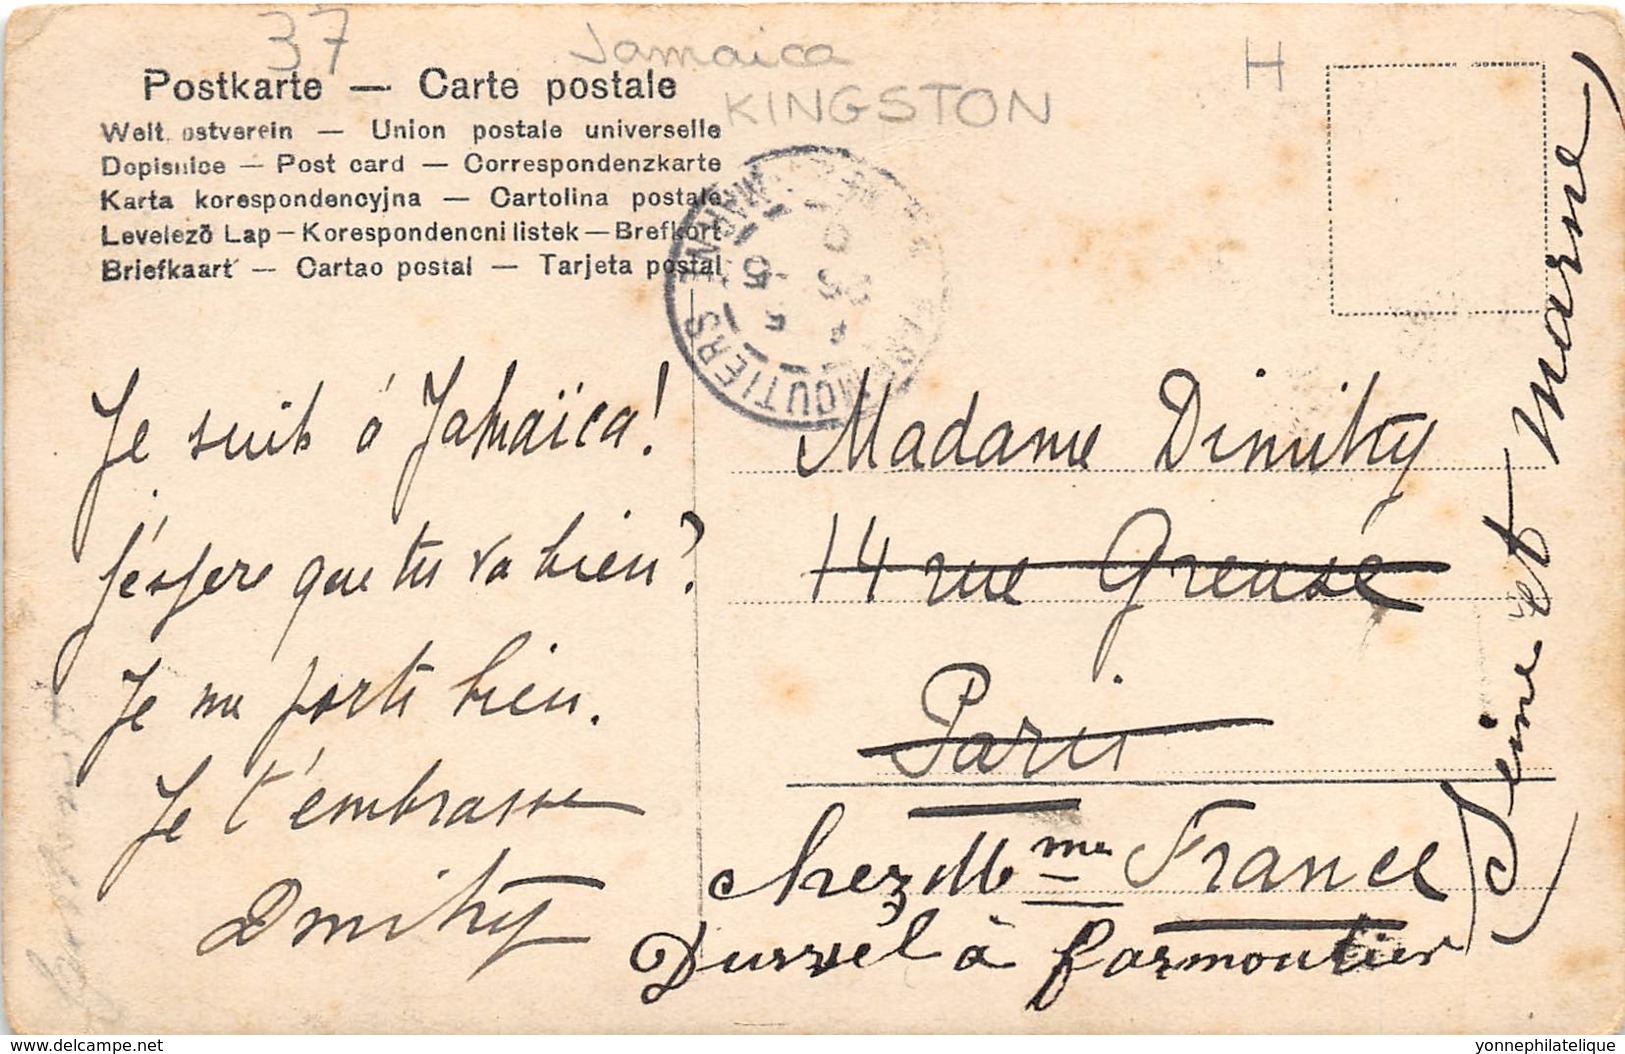 37
Jamaica
KINGSTON
H
Postkarte — Carte postale
Welt ostverein — Union postale universelle
Dopisnice — Post card — Correspondenzkarte
Karta korespondencyjna — Cartolina postale
Levelező Lap — Korespondencni listek — Brefkort
Briefkaart — Cartao postal — Tarjeta postal
MOUTIERS
MARNE
Je suis á Jamaïca!
J'éspere que tu va bien?
Je me porte bien.
Je t'émbrasse
Dmitry
Madame Dimitry
14 rue Greuse
Paris
chez Mme France
Durvel à farmoutier
(Seine et Marne)
delcampe.net
yonnephilatelique